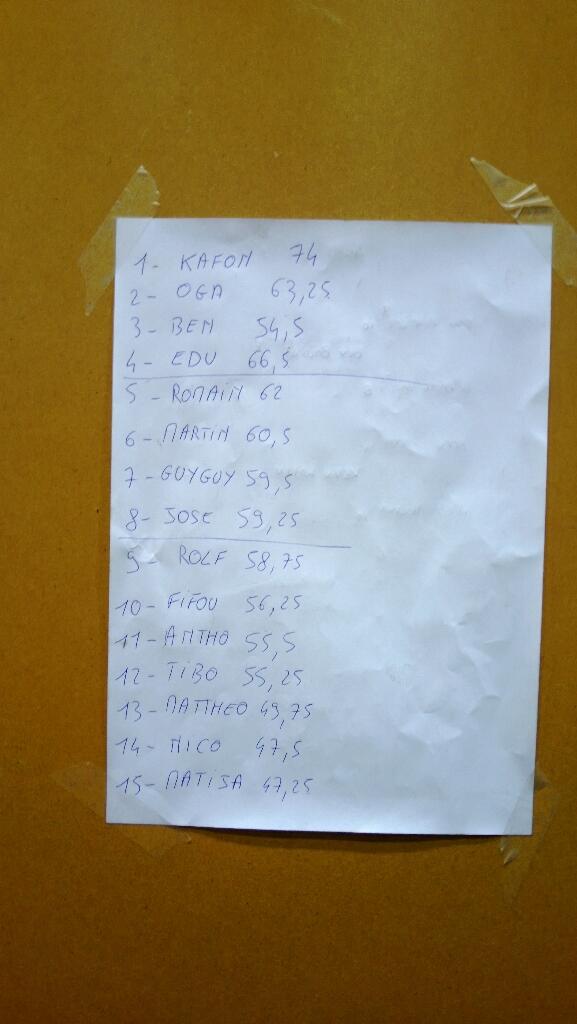 1- KAFON 74
2- OGA 63,25
3- BEN 54,5
4- EDU 66,5
5- ROMAIN 62
6- MARTIN 60,5
7- GUYGUY 59,5
8- JOSE 59,25
9- ROLF 58,75
10- FIFOU 56,25
11- ANTHO 55,5
12- TIBO 55,25
13- MATTHEO 49,75
14- NICO 47,5
15- MATISA 47,25